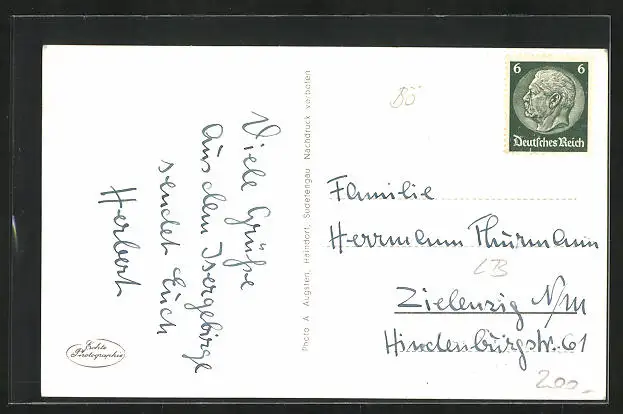 Viele Grüße
aus dem Isergebirge
sendet Euch
Herbert
Echte
Photographie
Photo A. Augsten, Haindorf, Sudetengau Nachdruck verboten
6 6
Deutsches Reich
Familie
Herrmann Thurmann
Zielenzig N/M
Hindenburgstr. 61
200.-